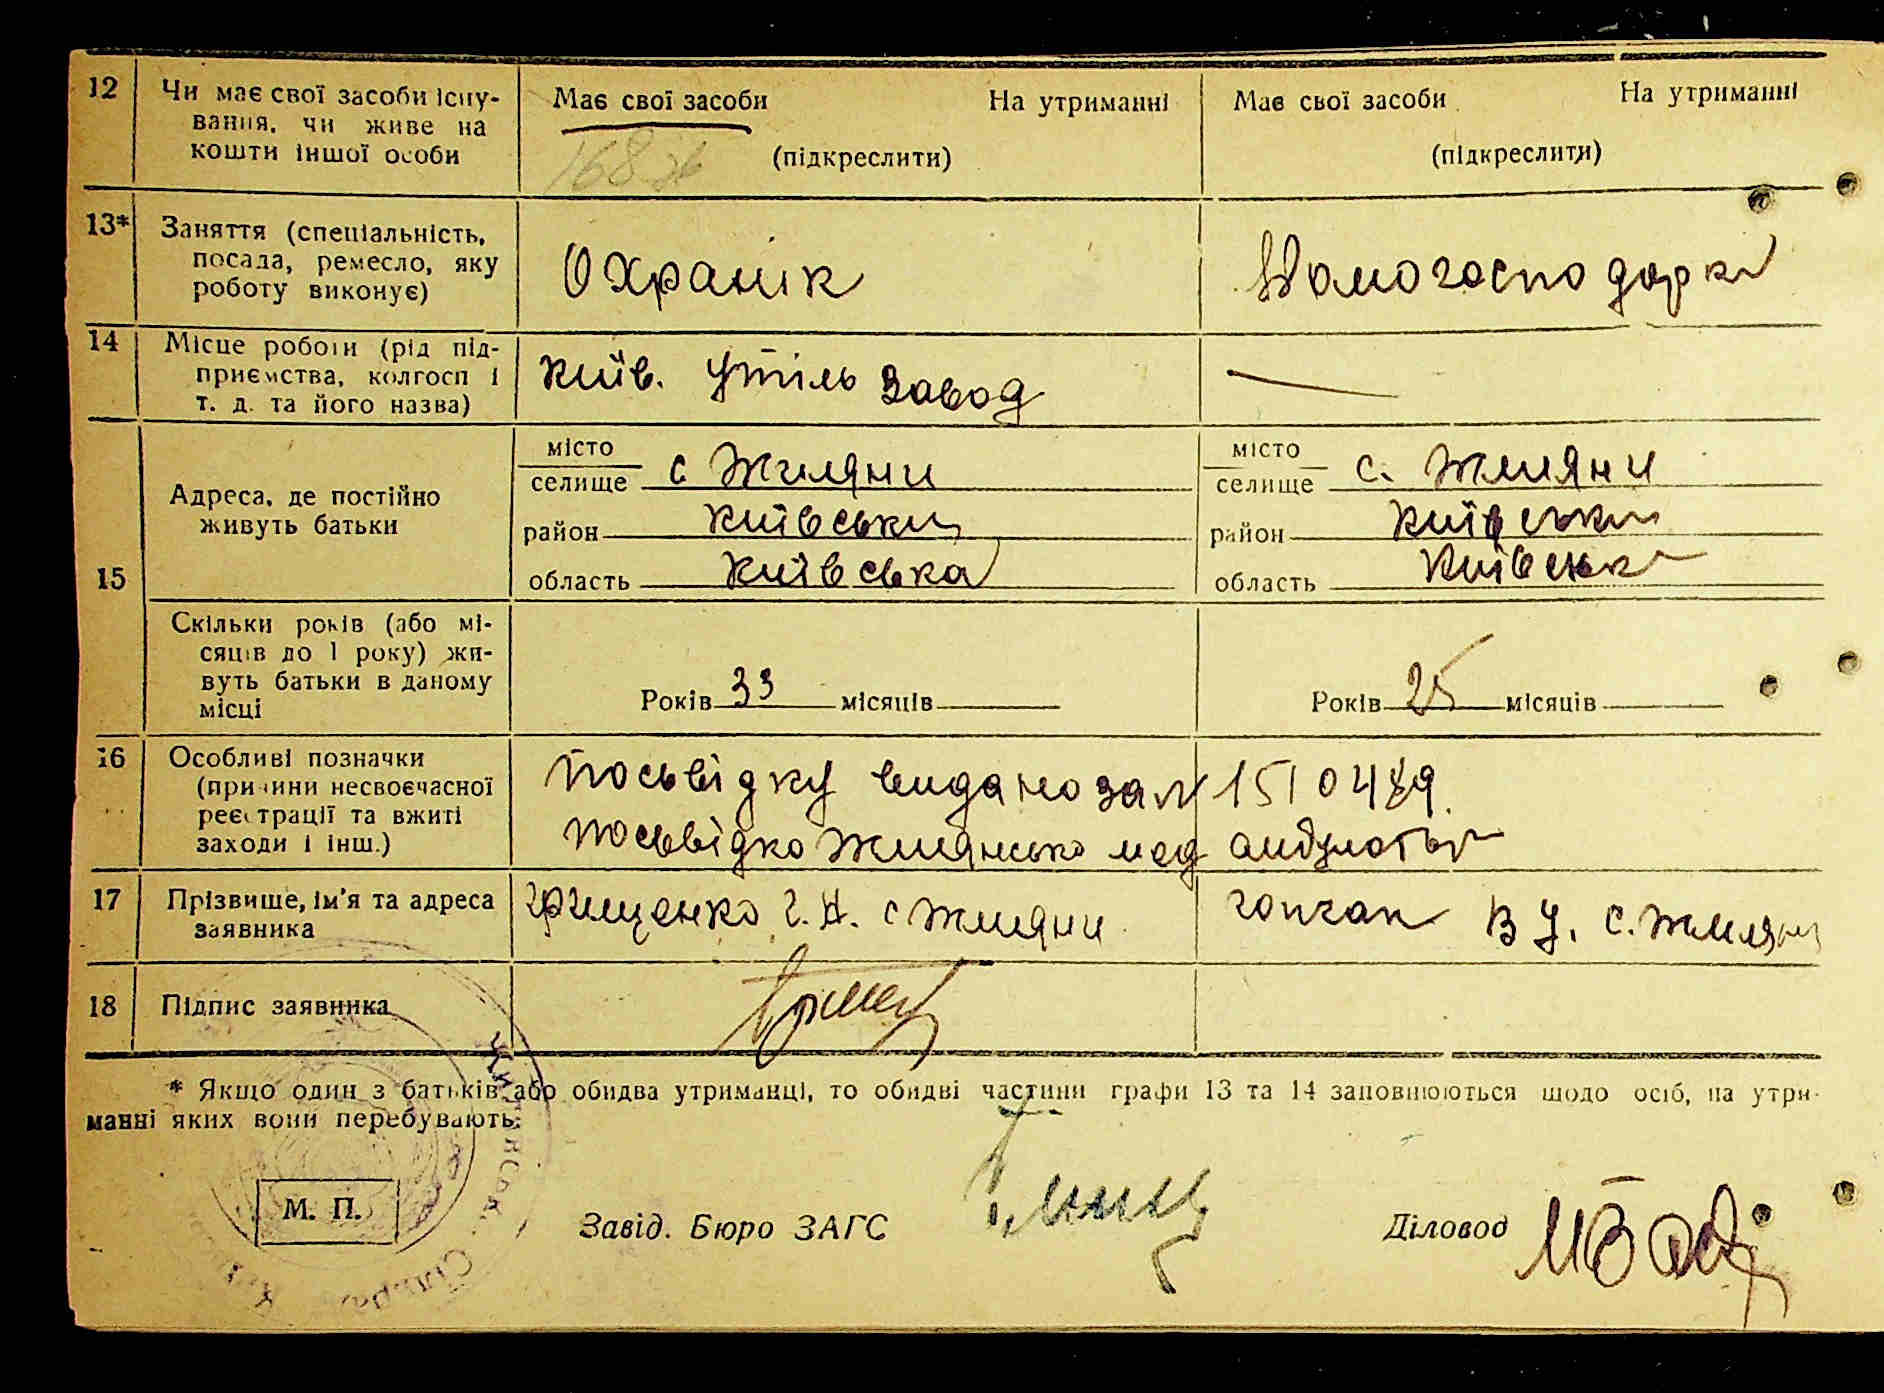 12 Чи має свої засоби існу-
вання, чи живе на
кошти іншої особи
Має свої засоби На утриманні
(підкреслити)
Має свої засоби На утриманні
(підкреслити)
13* Заняття (спеціальність,
посада, ремесло, яку
роботу виконує)
Охранік
Домогосподарка
14 Місце роботи (рід під-
приємства, колгосп і
т. д. та його назва)
Київ. Утіль завод
—
15 Адреса, де постійно
живуть батьки
місто
селище с Жиляни
район Київський
область Київська
місто
селище с. Жиляни
район Київський
область Київська
Скільки років (або мі-
сяців до 1 року) жи-
вуть батьки в даному
місці
Років 33 місяців
Років 25 місяців
16 Особливі позначки
(причини несвоєчасної
реєстрації та вжиті
заходи і інш.)
Посьвідку видано за №
Посьвідка Жилянсько мед
17 Прізвище, ім'я та адреса
заявника
Грищенко Г. Д. с Жиляни
Гопчак В У. с. Жиляни
18 Підпис заявника
* Якщо один з батьків або обидва утриманці, то обидві частини графи 13 та 14 заповнюються щодо осіб, на утри-
манні яких вони перебувають.
М. П.
Завід. Бюро ЗАГС
Діловод